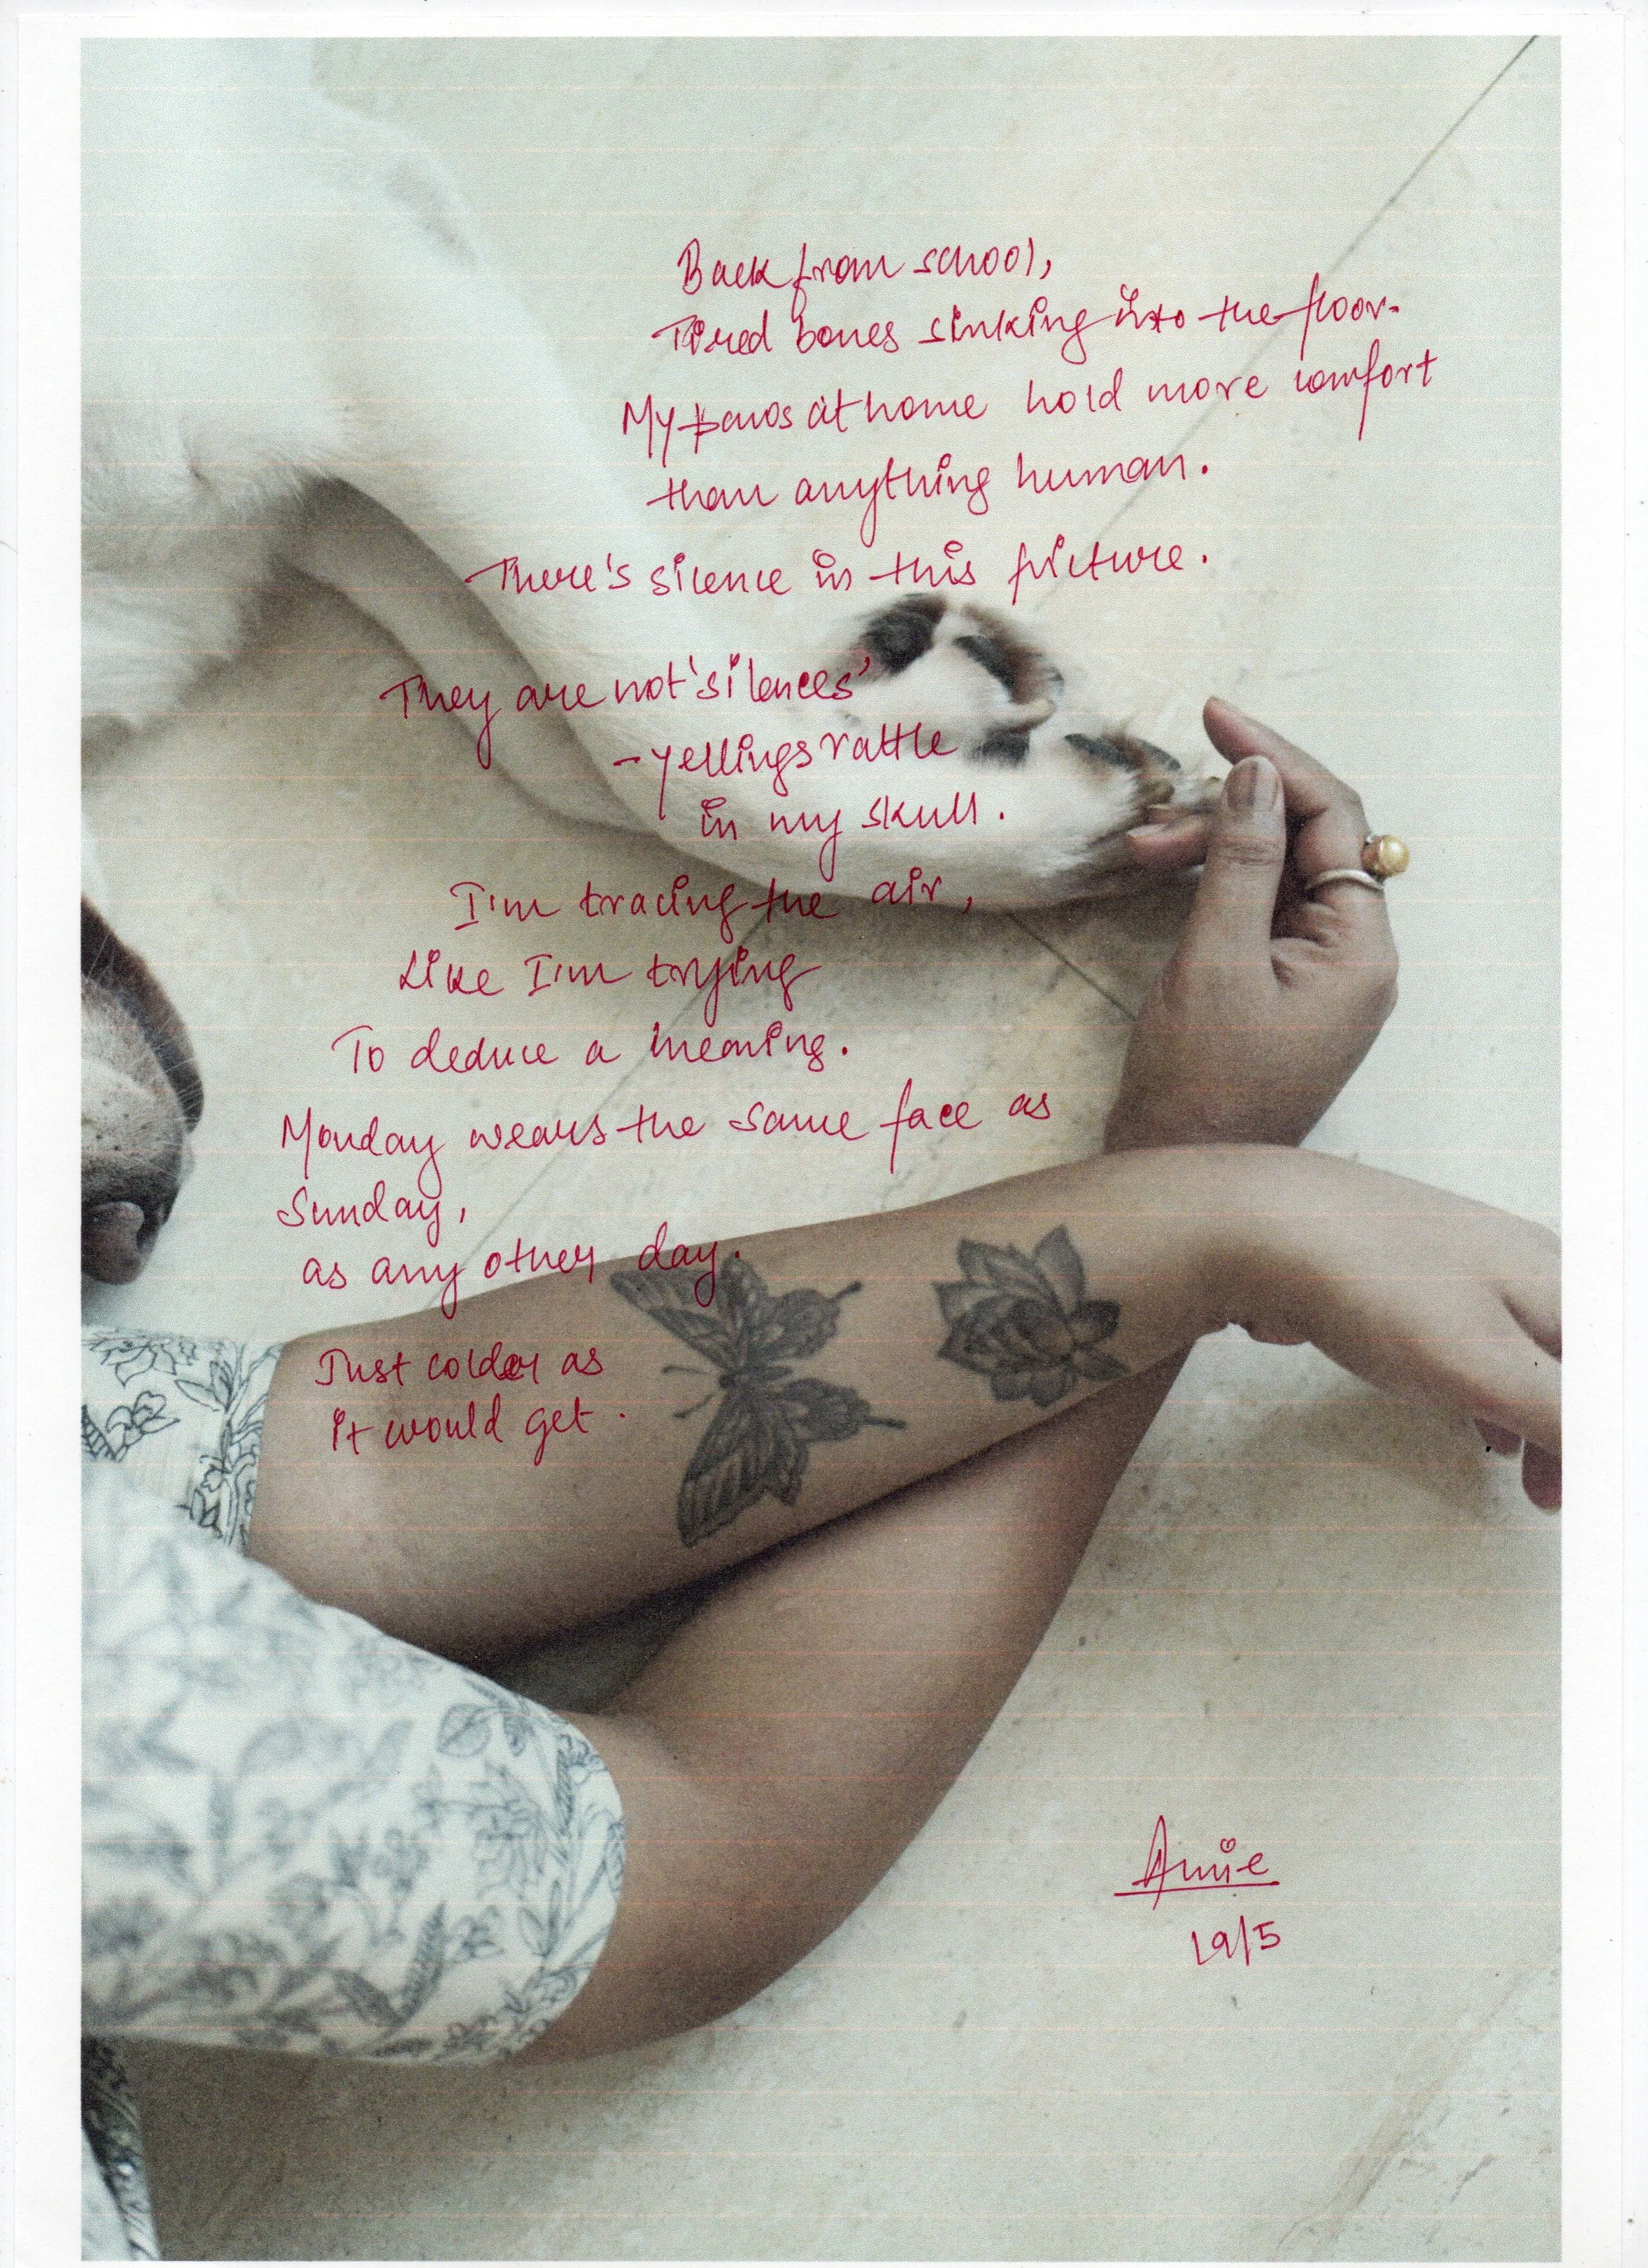 Back from school,
Tired bones sinking into the floor.
My paws at home hold more comfort
than anything human.
There's silence in this picture.
They are not 'silences'
- yellings rattle
in my skull.
I'm tracing the air,
Like I'm trying
To deduce a meaning.
Monday wears the same face as
Sunday,
as any other day.
Just colder as
it would get.
Annie
19/5